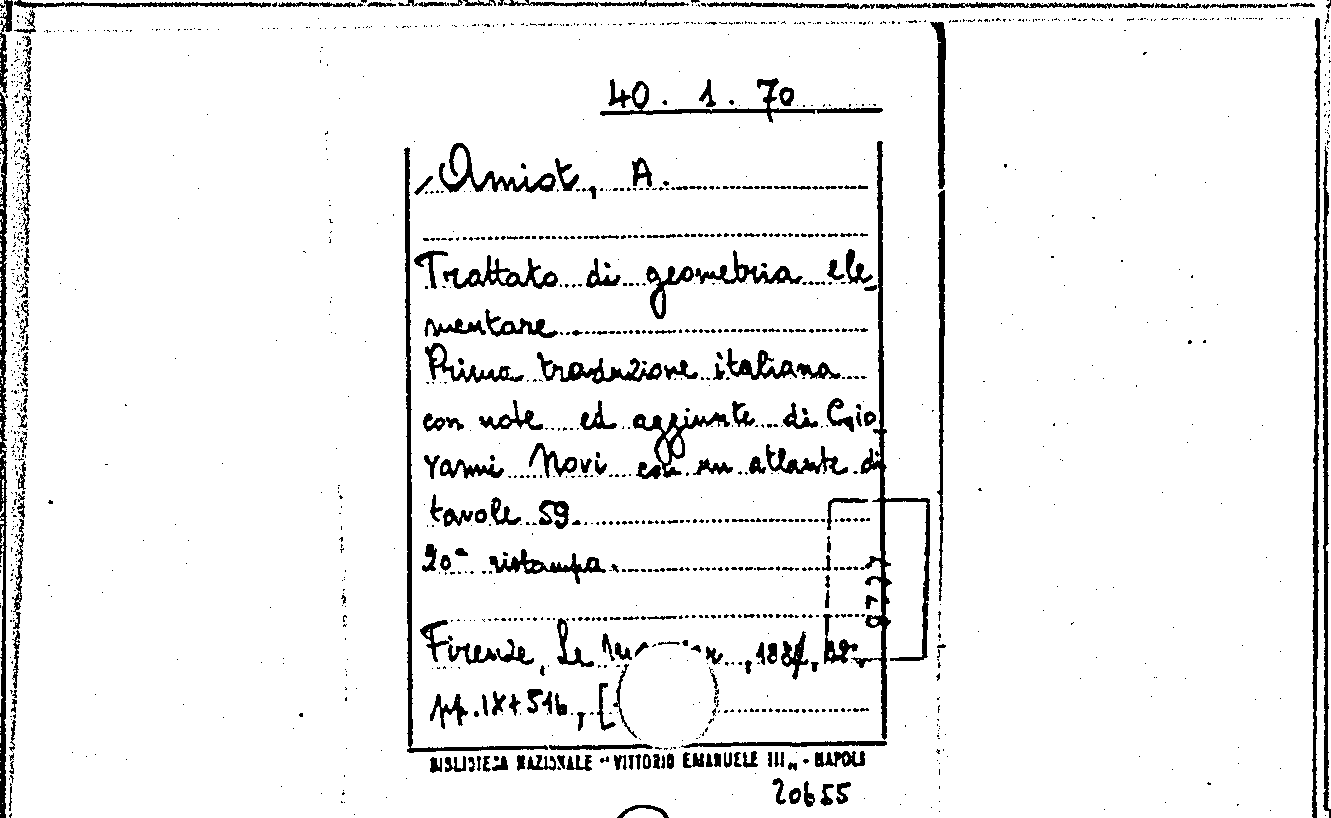 40. 1. 70
Amiot, A.
Trattato di geometria ele_
mentare.
Prima traduzione italiana
con note ed aggiunte di Gio_
vanni Novi con un atlante di
tavole 59.
20ª ristampa.
Firenze, Le
pp. IX+516, [
BIBLIOTECA NAZIONALE "VITTORIO EMANUELE III„ - NAPOLI
20655